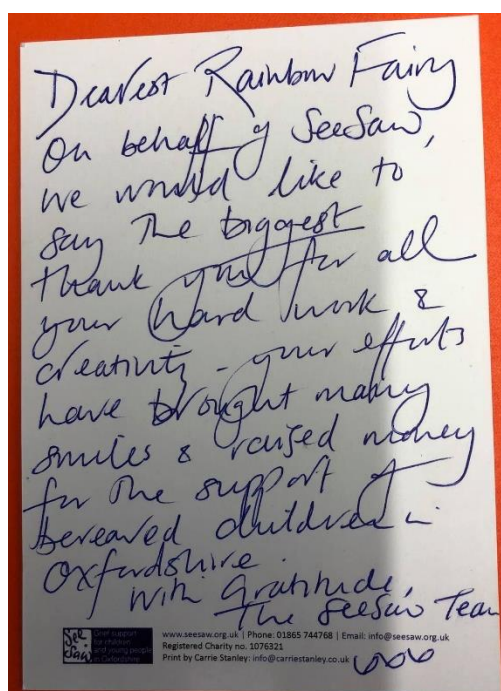 Dearest Rainbow Fairy
On behalf of SeeSaw,
we would like to
say the biggest
thank you for all
your hard work &
creativity - your efforts
have brought many
smiles & raised money
for the support of
bereaved children in
Oxfordshire.
With gratitude,
The SeeSaw Team
See
Saw
Grief support
for children
and young people
in Oxfordshire
www.seesaw.org.uk | Phone: 01865 744768 | Email: info@seesaw.org.uk
Registered Charity no. 1076321
Print by Carrie Stanley: info@carriestanley.co.uk